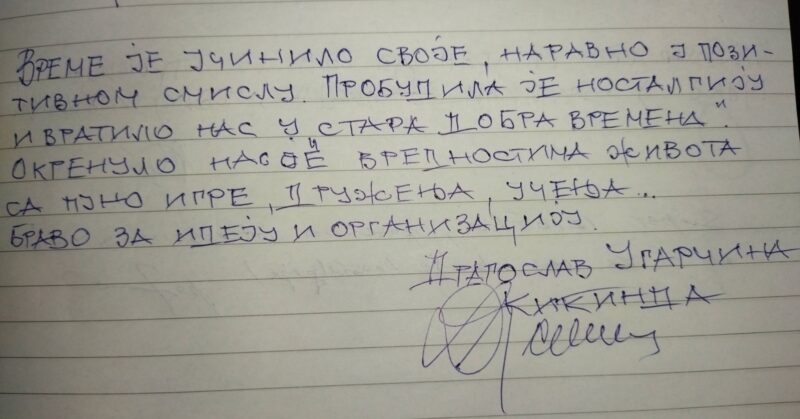 ВРЕМЕ ЈЕ УЧИНИЛО СВОЈЕ, НАРАВНО У ПОЗИ-
ТИВНОМ СМИСЛУ. ПРОБУДИЛА ЈЕ НОСТАЛГИЈУ
И ВРАТИЛО НАС У СТАРА ДОБРА ВРЕМЕНА".
ОКРЕНУЛО НАС ВРЕДНОСТИМА ЖИВОТА
СА ПУНО ИГРЕ, ДРУЖЕЊА, УЧЕЊА...
БРАВО ЗА ИДЕЈУ И ОРГАНИЗАЦИЈУ.
ДРАГОСЛАВ УГАРЧИНА
КИКИНДА